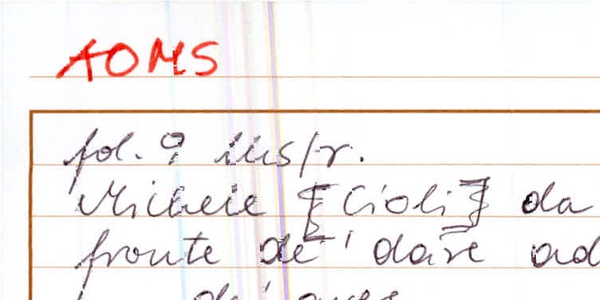 AOMS
fol. 9 ins/r.
Michele [Cioli] da
fronte de' dare ad